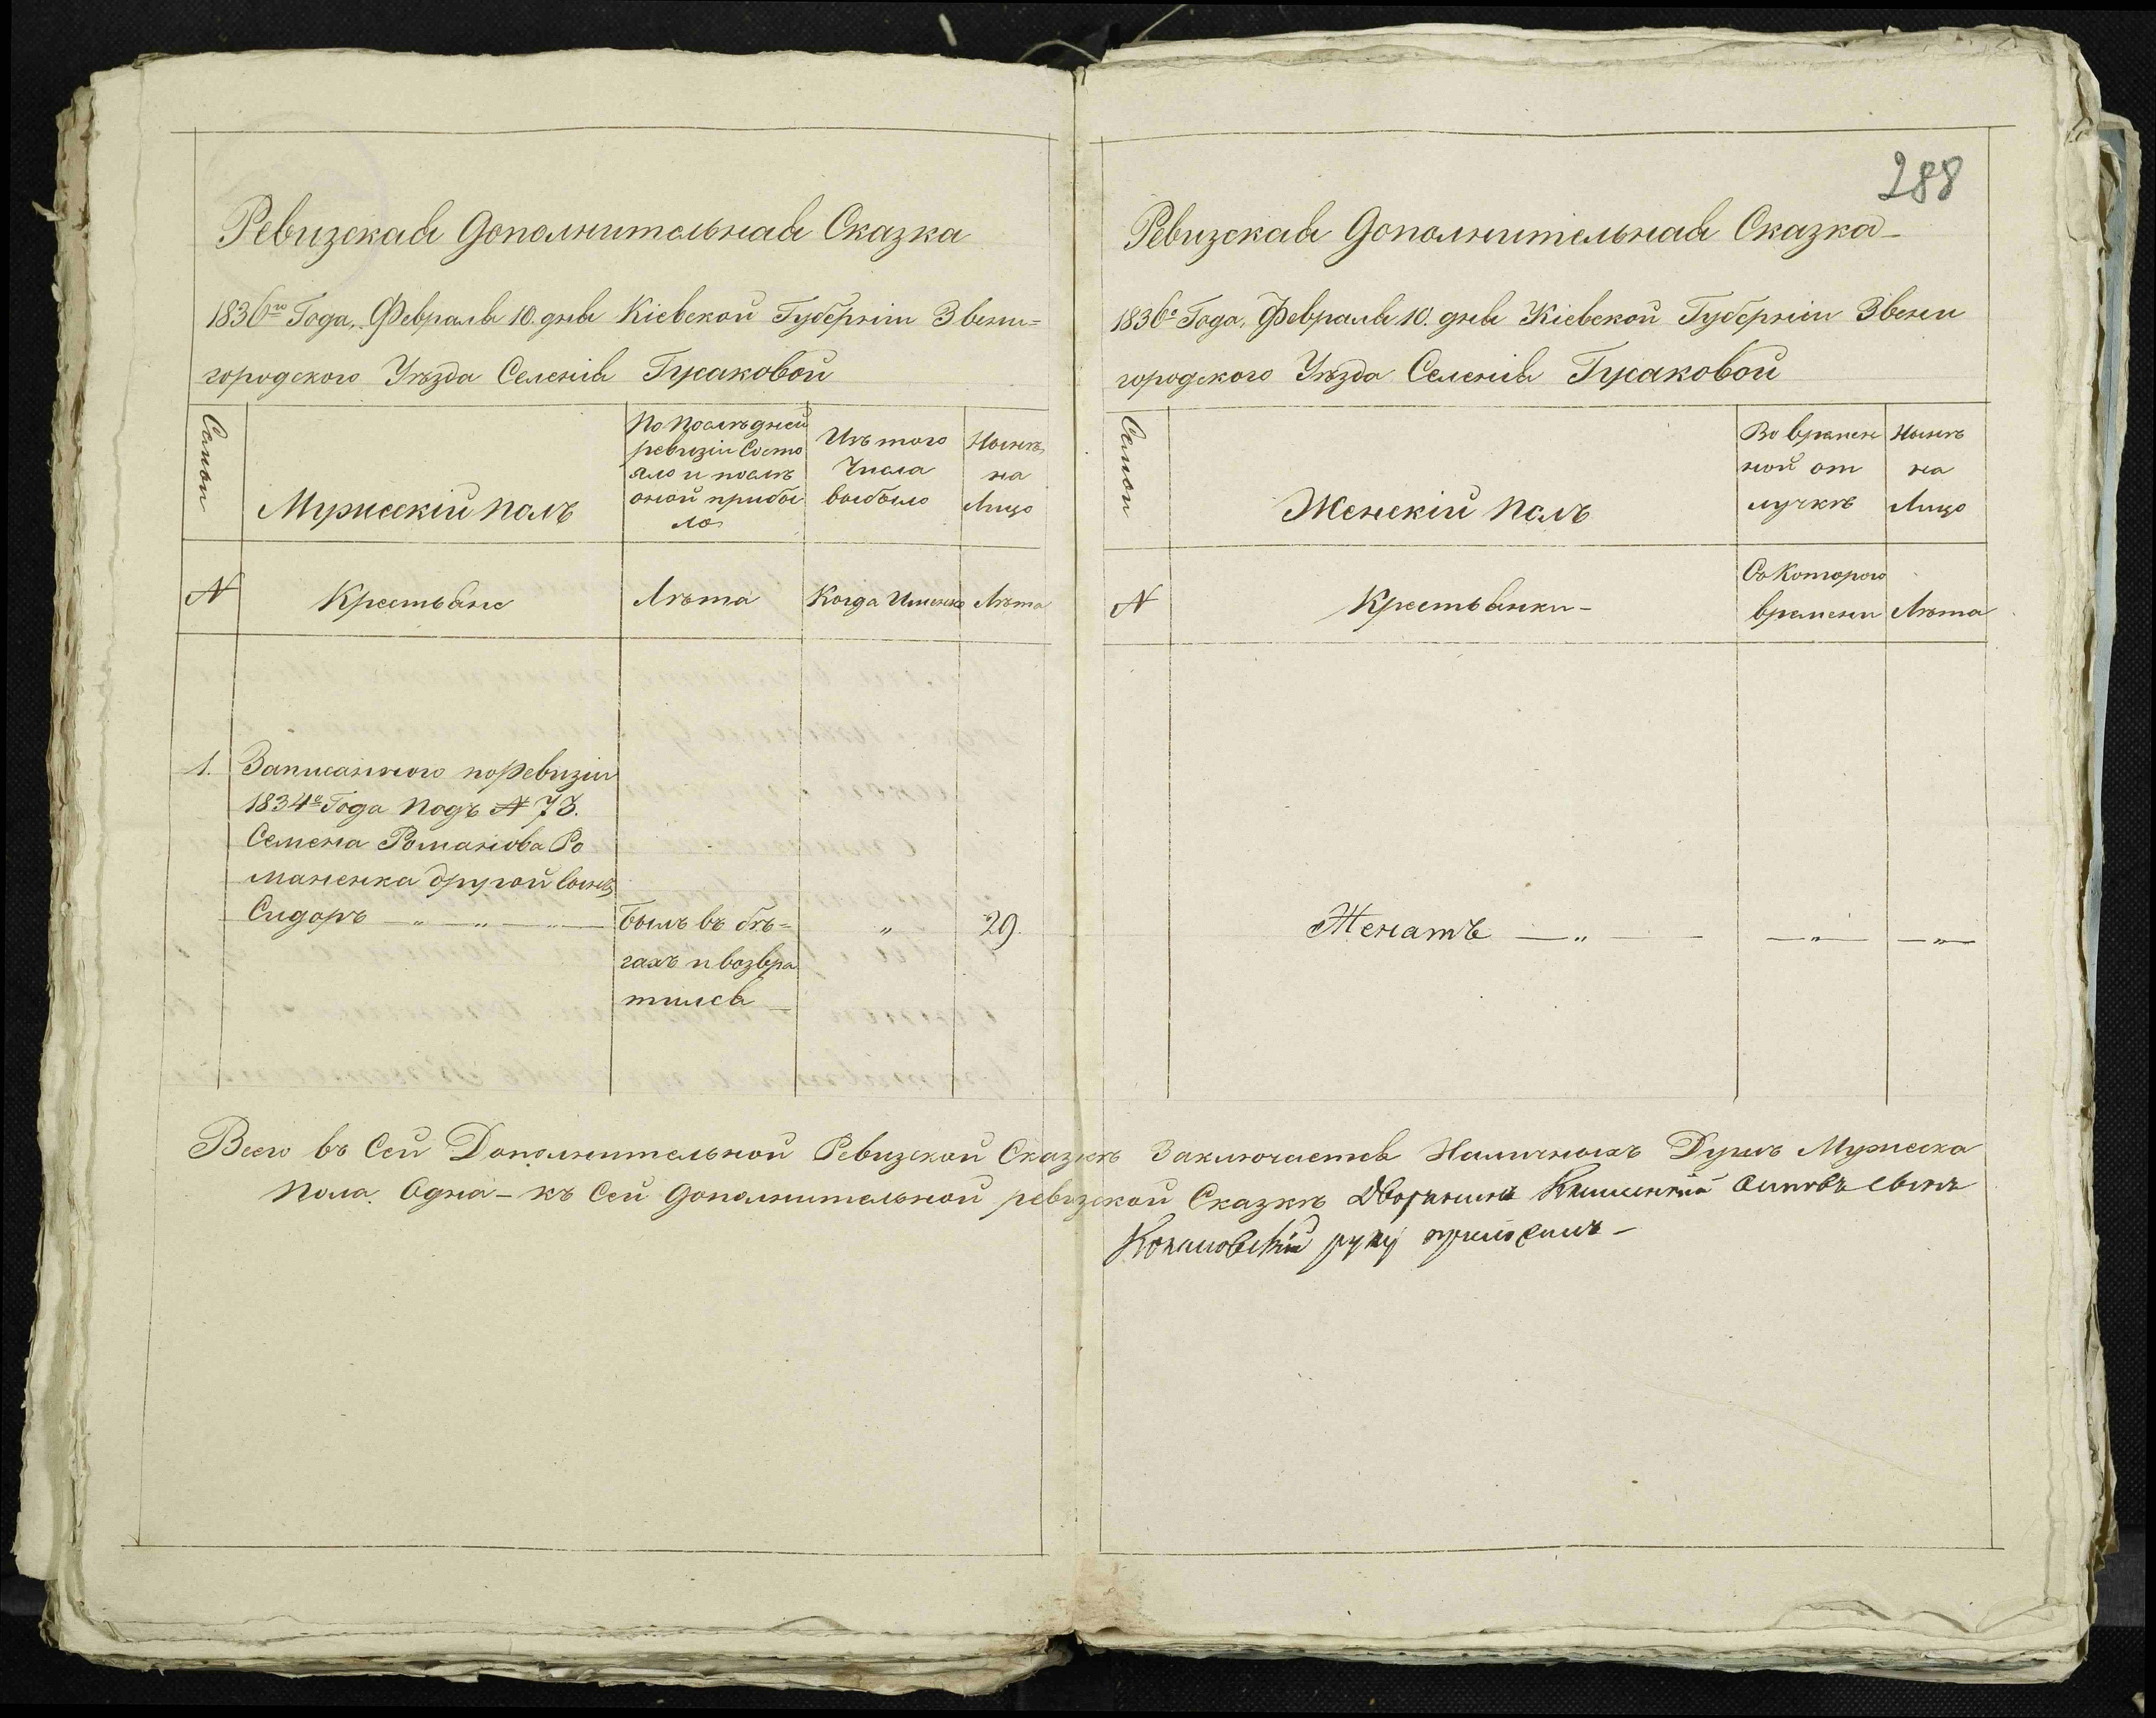 Ревизская Дополнительная Сказка
1836го Года, Февраля 10. дня Кіевской Губерніи Звени=
городского Уѣзда Селенія Гусаковой
Семьи
Мужескій полъ
По послѣдней
ревизіи Состо
яло и послѣ
оной прибы
ло
Изъ того
Числа
выбыло
Нынѣ
на
Лицо
N
Крестьяне
Лѣта
Когда Именно
Лѣта
1.
Записанного поРевизіи
1834го Года подъ N 73.
Семена Романова Ро
маненка другой Сынъ
Сидоръ — „ — „ — „ —
былъ въ бѣ=
гахъ и возвра
тился
„
29.
288
Ревизская Дополнительная Сказка
1836го Года, Февраля 10. дня Кіевской Губерніи Звени
городского Уѣзда Селенія Гусаковой
Семьи
Женскій полъ
Во времен
ной от
лучкѣ
Нынѣ
на
Лицо
N
Крестьянки
Съ Которого
времени
Лѣта
Женатъ — „ —
— „ —
— „ —
Всего въ Сей Дополнительной Ревизской Сказкѣ Заключается Наличныхъ Душъ Мужеска
пола. Одна — къ Сей дополнительной ревизской Сказкѣ Дворянинъ сынъ
руку приложилъ —